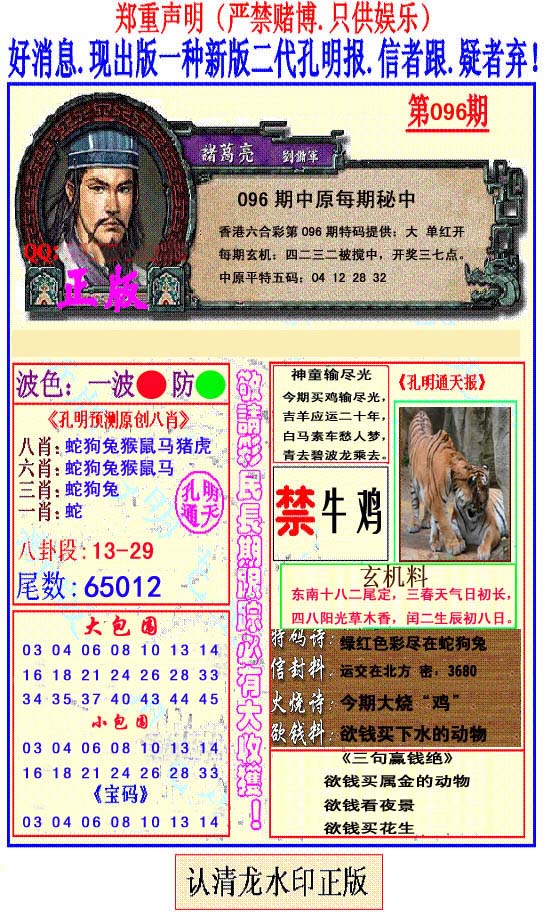 郑重声明（严禁赌博.只供娱乐）
好消息.现出版一种新版二代孔明报.信者跟.疑者弃!
第096期
諸葛亮 劉備軍
096 期中原每期秘中
香港六合彩第 096 期特码提供：大 单红开
每期玄机：四二三二被搅中，开奖三七点。
中原平特五码：04 12 28 32
QQ:
正版
波色：一波 防
《孔明预测原创八肖》
八肖:蛇狗兔猴鼠马猪虎
六肖:蛇狗兔猴鼠马
三肖:蛇狗兔
一肖:蛇
孔明
通天
八卦段:13-29
尾数:65012
大包围
03 04 06 08 10 13 14
16 18 21 24 26 28 33
34 35 37 40 43 44 45
小包围
03 04 06 08 10 13 14
16 18 21 24 26 28 33
《宝码》
03 04 06 08 10 13 14
敬請彩民長期跟踪必有大收獲！
神童输尽光
今期买鸡输尽光，
吉羊应运二十年，
白马素车愁人梦，
青去碧波龙乘去。
《孔明通天报》
禁牛鸡
玄机料
东南十八二尾定，三春天气日初长，
四八阳光草木香，闰二生辰初八日。
特码诗：绿红色彩尽在蛇狗兔
信封料．运交在北方 密：3680
火烧诗：今期大烧“鸡”
欲钱料：欲钱买下水的动物
《三句赢钱绝》
欲钱买属金的动物
欲钱看夜景
欲钱买花生
认清龙水印正版